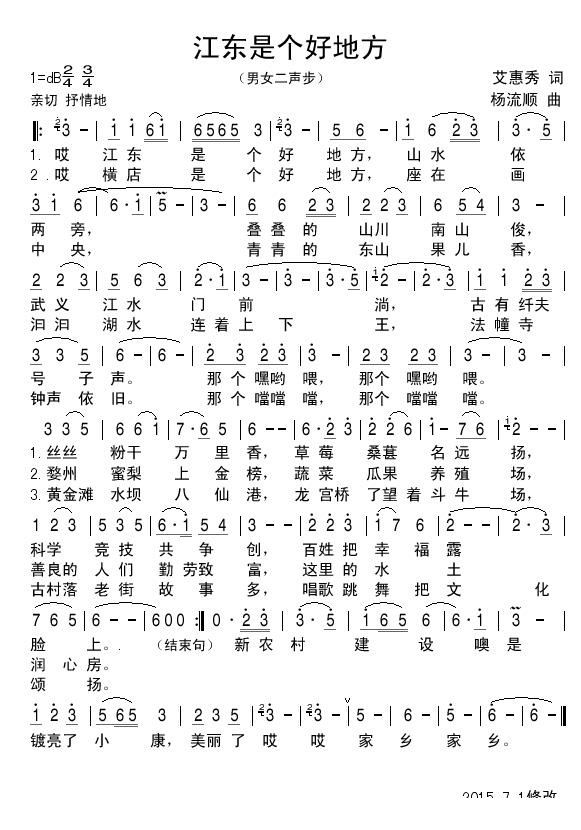 江东是个好地方
1=dB 2/4 3/4
（男女二声步）
艾惠秀 词
亲切 抒情地
杨流顺 曲
1. 哎 江东 是 个 好 地 方， 山 水 依
2. 哎 横店 是 个 好 地 方， 座 在 画
两 旁， 叠 叠 的 山川 南 山 俊，
中 央， 青 青 的 东山 果 儿 香，
武 义 江 水 门 前 淌， 古 有 纤夫
汩 汩 湖 水 连 着 上 下 王， 法 幢 寺
号 子 声。 那 个 嘿哟 喂， 那个 嘿哟 喂。
钟声 依 旧。 那 个 噹噹 噹， 那个 噹噹 噹。
1. 丝丝 粉干 万 里 香， 草 莓 桑葚 名 远 扬，
2. 婺州 蜜梨 上 金 榜， 蔬 菜 瓜果 养 殖 场，
3. 黄金滩 水坝 八 仙 港， 龙 宫桥 了望 着 斗 牛 场，
科学 竞 技 共 争 创， 百姓 把 幸 福 露
善良的 人 们 勤 劳致 富， 这里 的 水 土
古村落 老 街 故 事 多， 唱歌 跳 舞 把 文 化
脸 上。 （结束句） 新 农 村 建 设 噢 是
润 心 房。
颂 扬。
镀亮了 小 康， 美丽 了 哎 哎 家 乡 家 乡。
2015.7.1修改